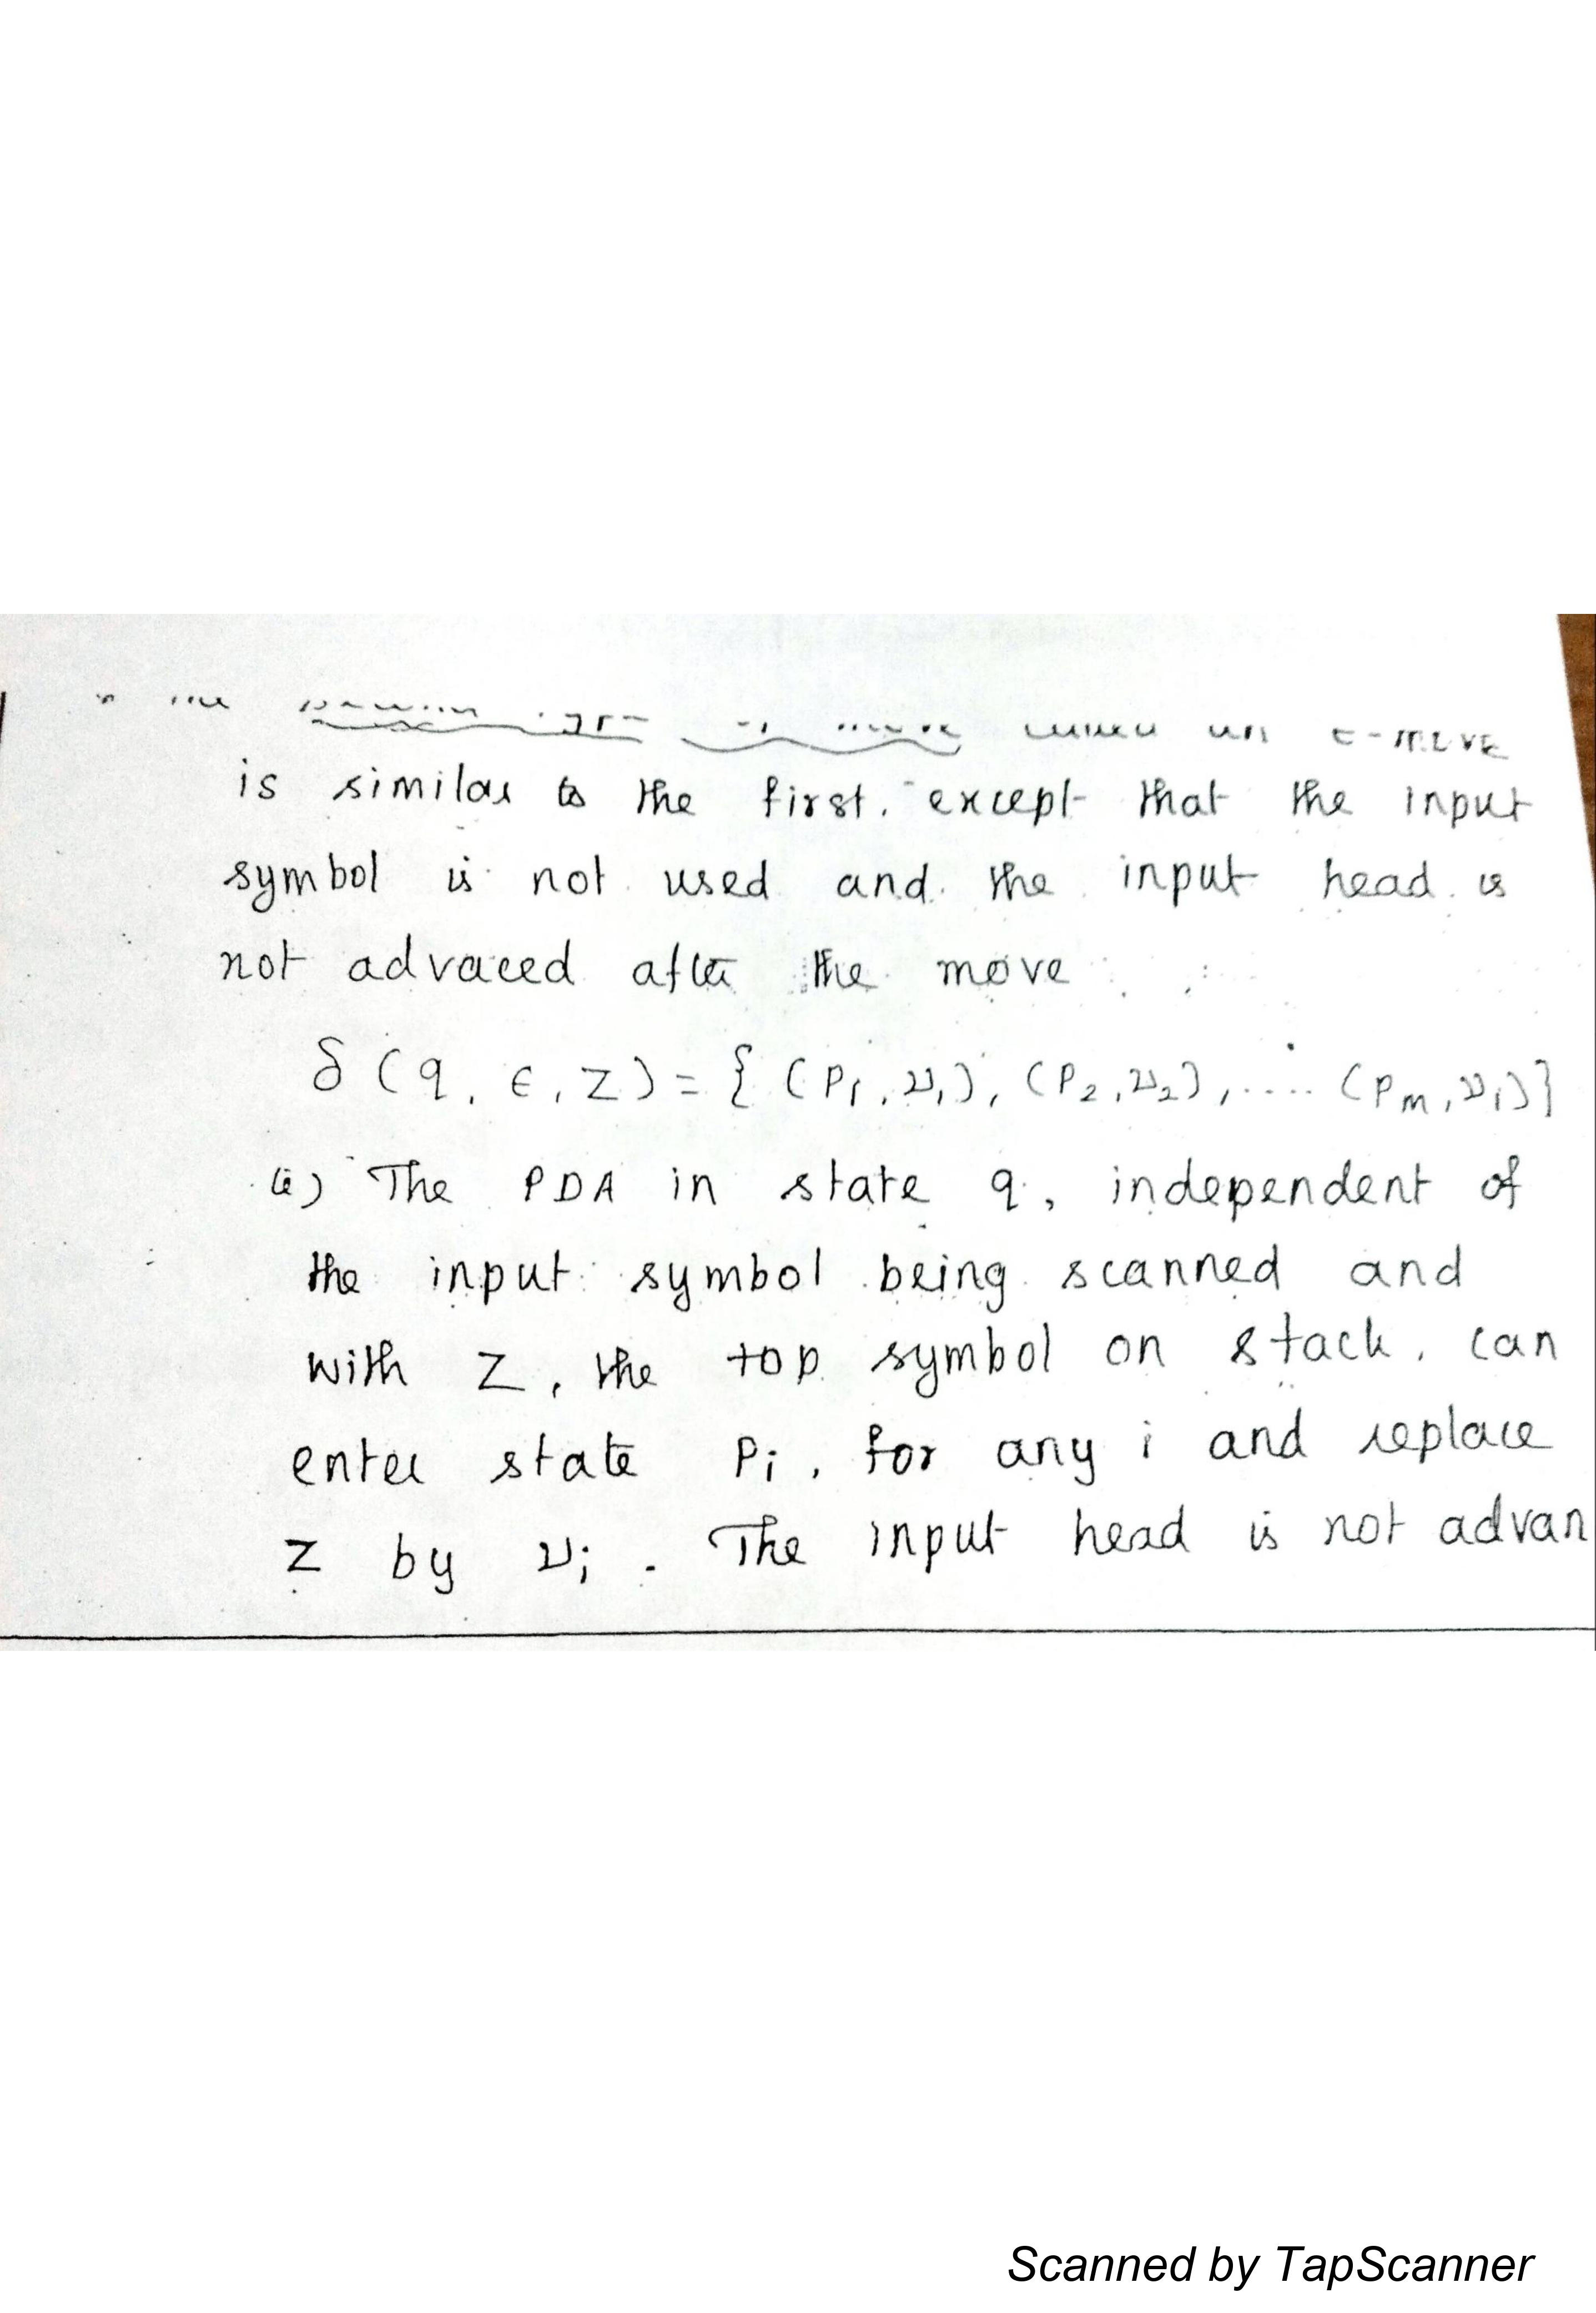 is similar to the first. except that the input
symbol is not used and the input head is
not advaced after the move
δ (q, ε, Z) = { (P₁, ν₁), (P₂, ν₂), .... (Pm, νi)}
(ii) The PDA in state q, independent of
the input symbol being scanned and
with Z, the top symbol on stack, can
enter state Pi, for any i and replace
Z by νi. The input head is not advan
Scanned by TapScanner